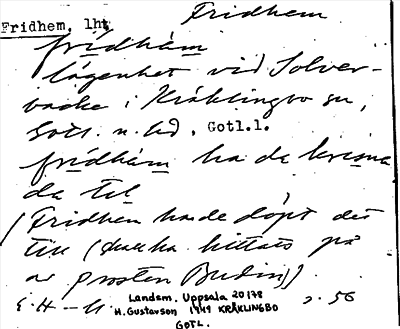 Fridhem
Fridhem, lht
fridhäm
lägenhet vid Solver-
backe i Kräklingbo sn,
Gotl. n. hd. Gotl.l.
fridhäm ha de
da te
(Fridhem hade döpt det
till ( ha hittats på
av prosten Budin))
Landsm. Uppsala 20178
H. Gustavson 1949 KRÄKLINGBO s. 56
GOTL.